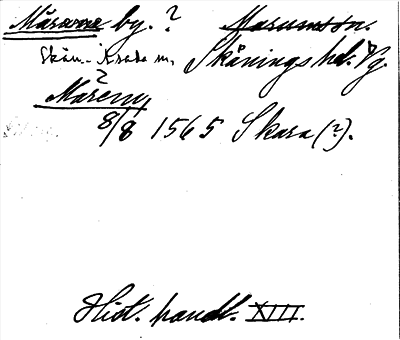 Märene by. ? Marumsson.
Skån.-Åsaka sn, Skånings hd. Vg.
?
Marem,
8/8 1565 Skara (?).
Hist. handl. XIII.